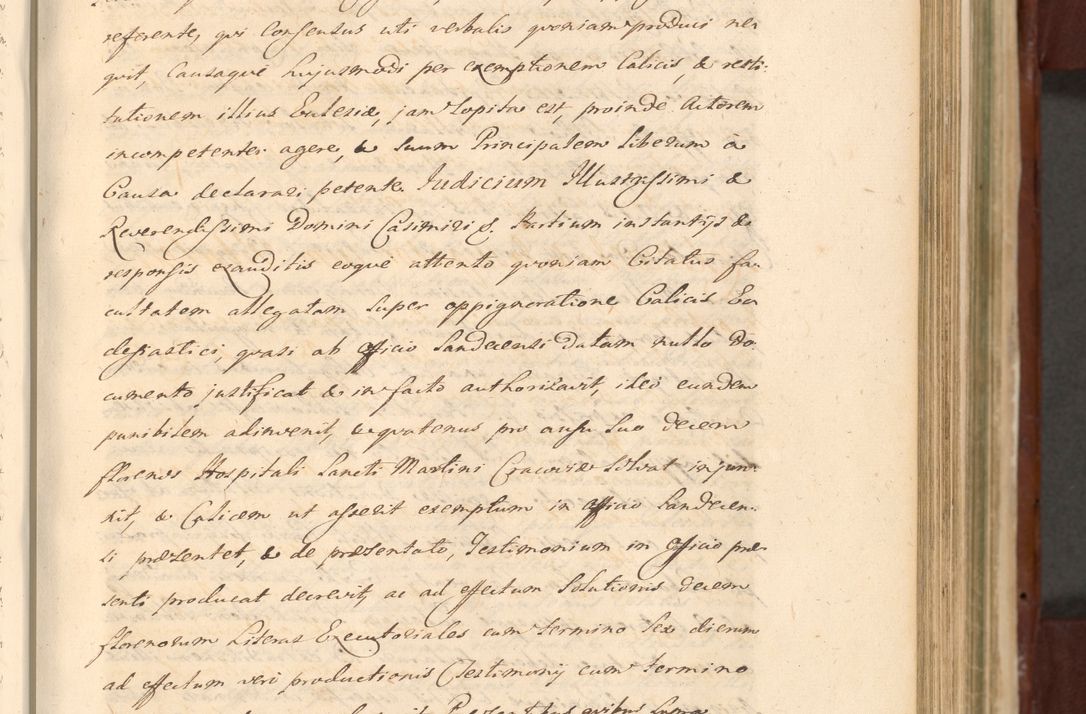 referente, qui Consensus uti verbalis quoniam produci ne-
quit, Causaque hujusmodi per exemptionem Calicis, & resti-
tutionem illius Eulesiæ, jam sopita est, proinde Actorem
incompetenter agere, & suum Principalem liberum à
Causa declarari petente. Judicium Illustrissimi &
Reverendissimi Domini Casimiri S. Partium instantijs &
responsis exauditis eoque attento quoniam Citatus fa-
cultatem allegatam super oppignoratione Calicis Ec-
clesiastici, quasi ab officio Sandecensi Datam nullo Do-
cumento justificat & in facto authorisavit, ideo eundem
punibilem adinvenit, & quatenus pro ausu suo decem
florenos Hospitali Sancti Martini Cracoviæ solvat injun-
xit, & Calicem ut asserit exemptum in officio Sandecen-
si præsentet, & de præsentato, Testimonium in officio præ-
senti producat decrevit, ac ad effectum Solutionis decem
florenorum Literas Executoriales cum termino sex dierum
ad effectum vero productionis Testimonij cum termino
Præsentibus quibus supra